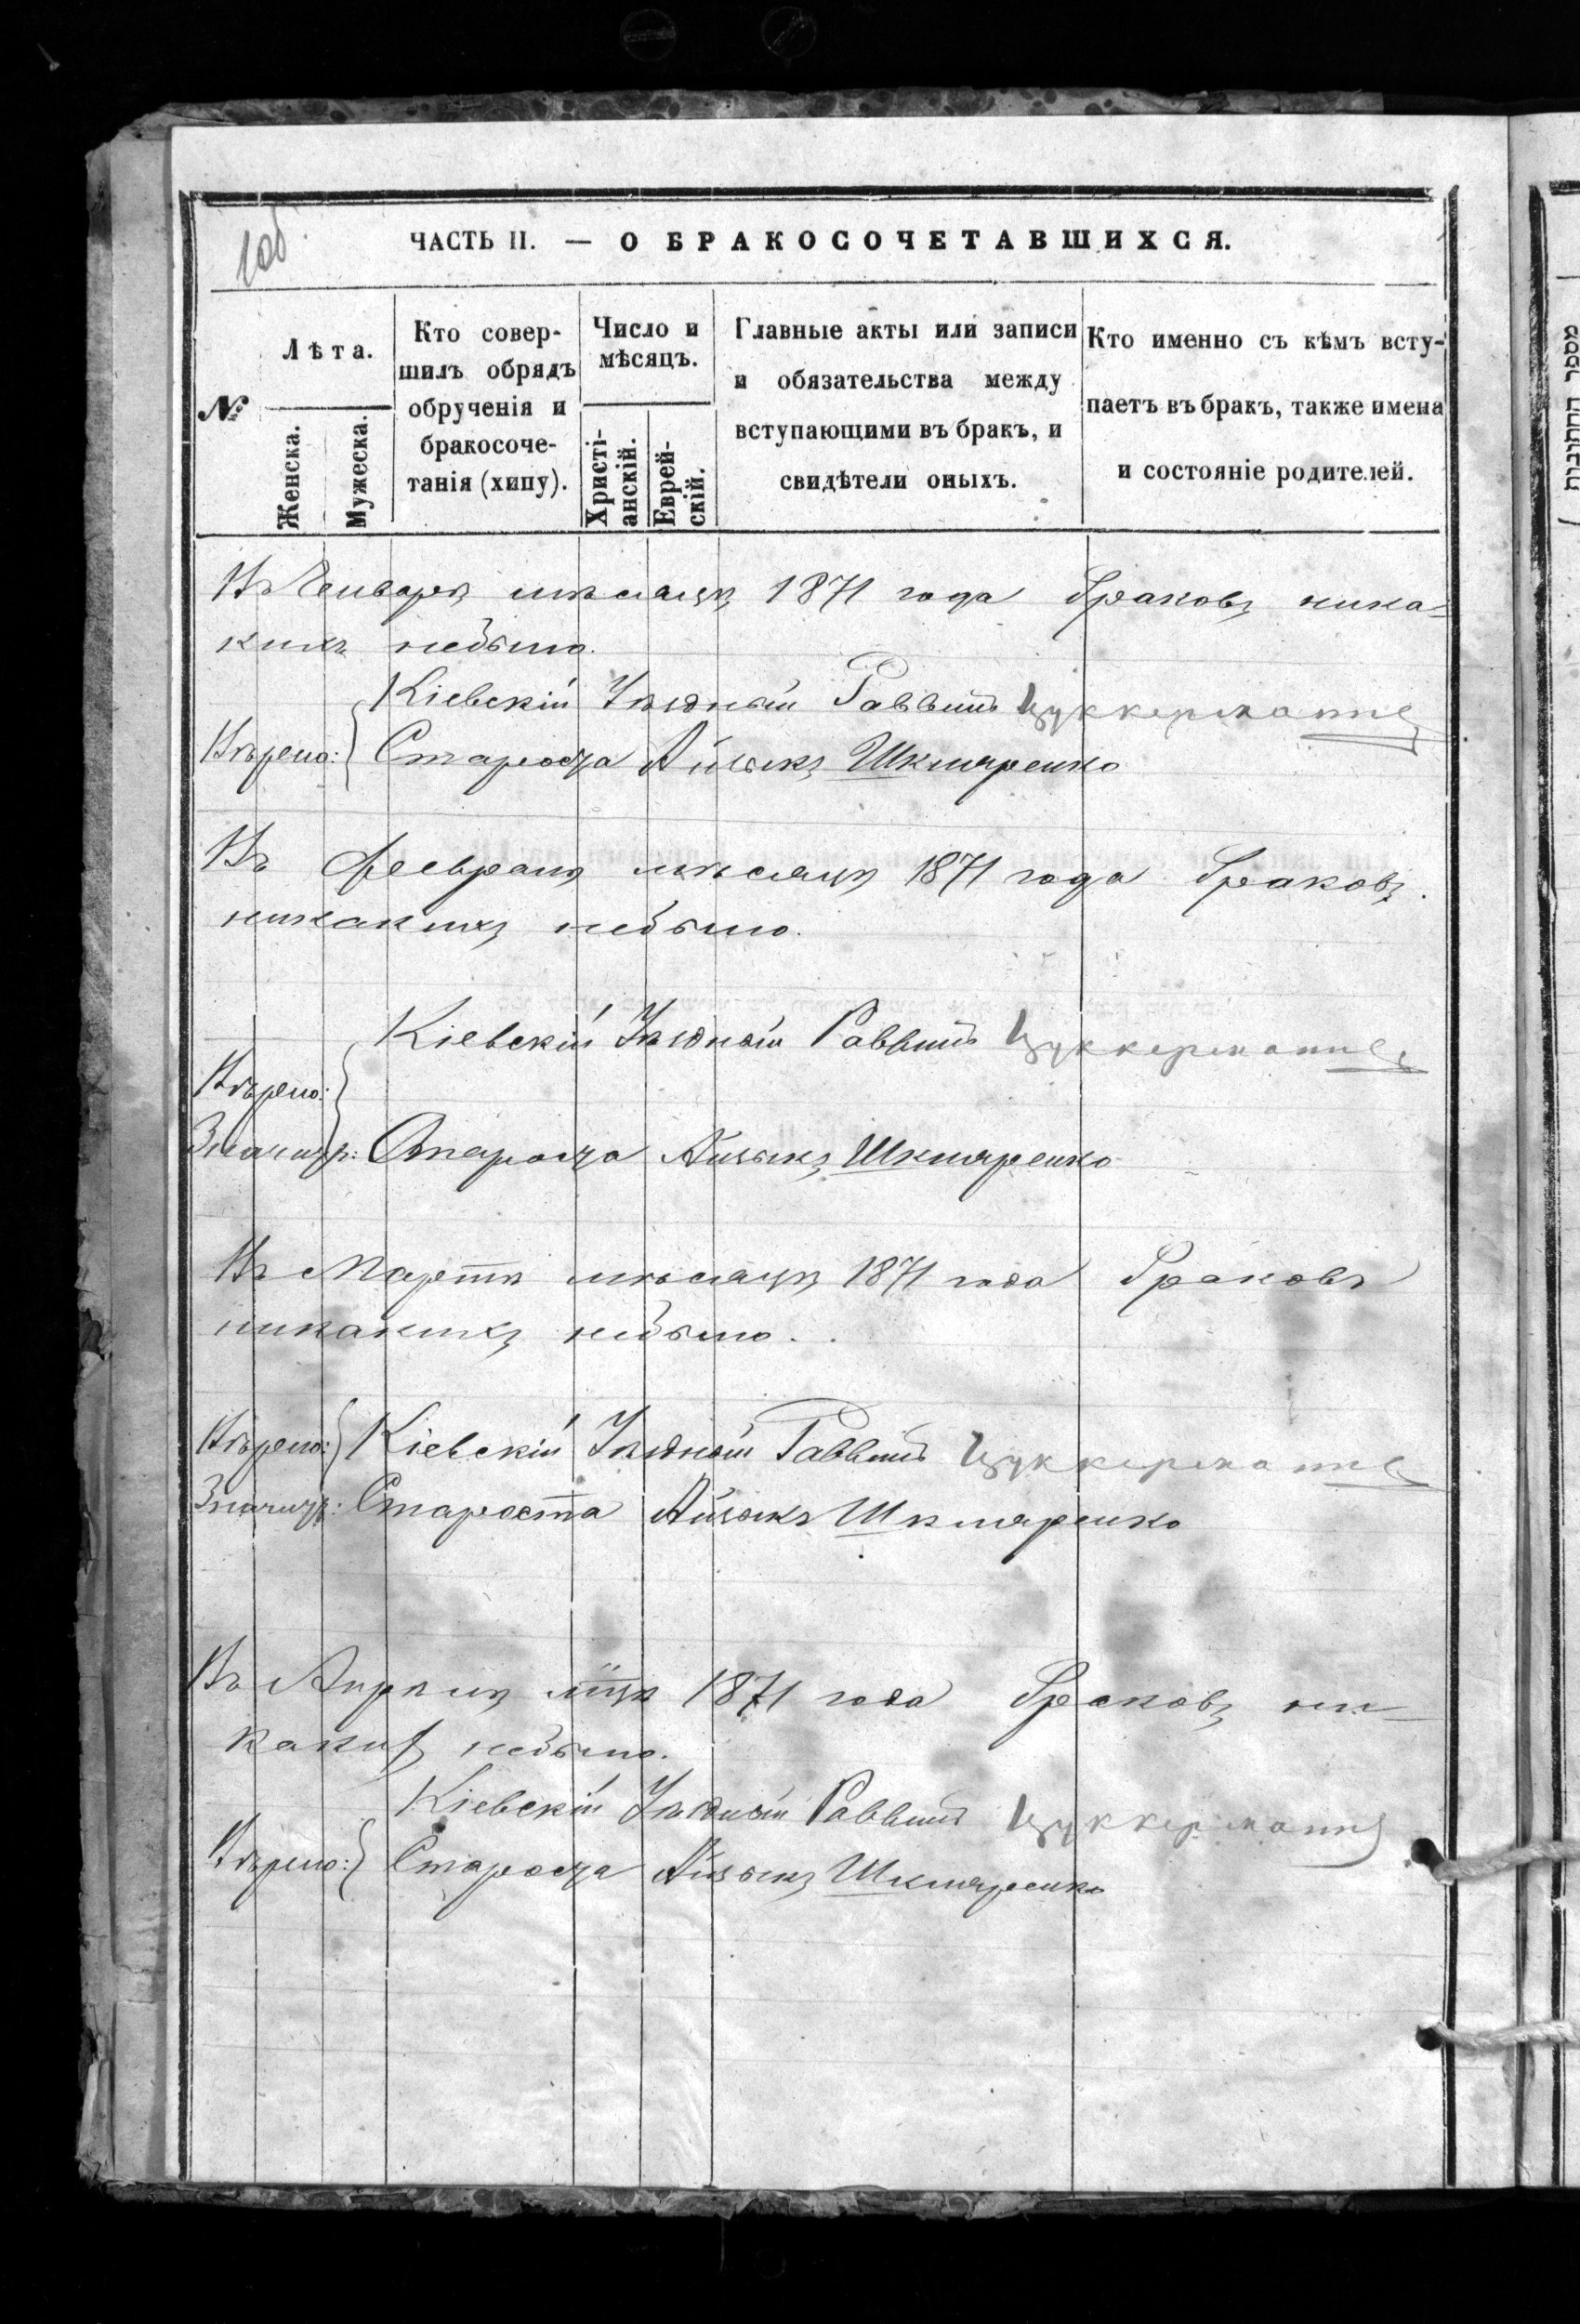 1об.
ЧАСТЬ II. — О БРАКОСОЧЕТАВШИХСЯ.
№
Лѣта.
Женска.
Мужеска.
Кто совер-
шилъ обрядъ
обрученія и
бракосоче-
танія (хипу).
Число и
мѣсяцъ.
Христі-
анскій.
Еврей-
скій.
Главные акты или записи
и обязательства между
вступающими въ бракъ, и
свидѣтели оныхъ.
Кто именно съ кѣмъ всту-
паетъ въ бракъ, также имена
и состояніе родителей.
Въ Генварѣ мѣсяцѣ 1871 года браковъ ника=
кихъ небыло.
Кіевскій Уѣздный Раввинъ Цуккерманъ
Вѣрено: Староста Айзыкъ Шкляренко
Въ Февралѣ мѣсяцѣ 1871 года браковъ
никакихъ небыло.
Кіевскій Уѣздный Раввинъ Цуккерманъ
Вѣрено:
Значитъ: Староста Айзыкъ Шкляренко
Въ Мартѣ мѣсяцѣ 1871 года браковъ
никакихъ небыло.
Вѣрено: Кіевскій Уѣздный Раввинъ Цуккерманъ
Значитъ: Староста Айзыкъ Шкляренко
Въ Апрѣлѣ мцѣ 1871 года браковъ ни-
какихъ небыло.
Кіевскій Уѣздный Раввинъ Цуккерманъ
Вѣрено: Староста Айзыкъ Шкляренко
מספר החתונות